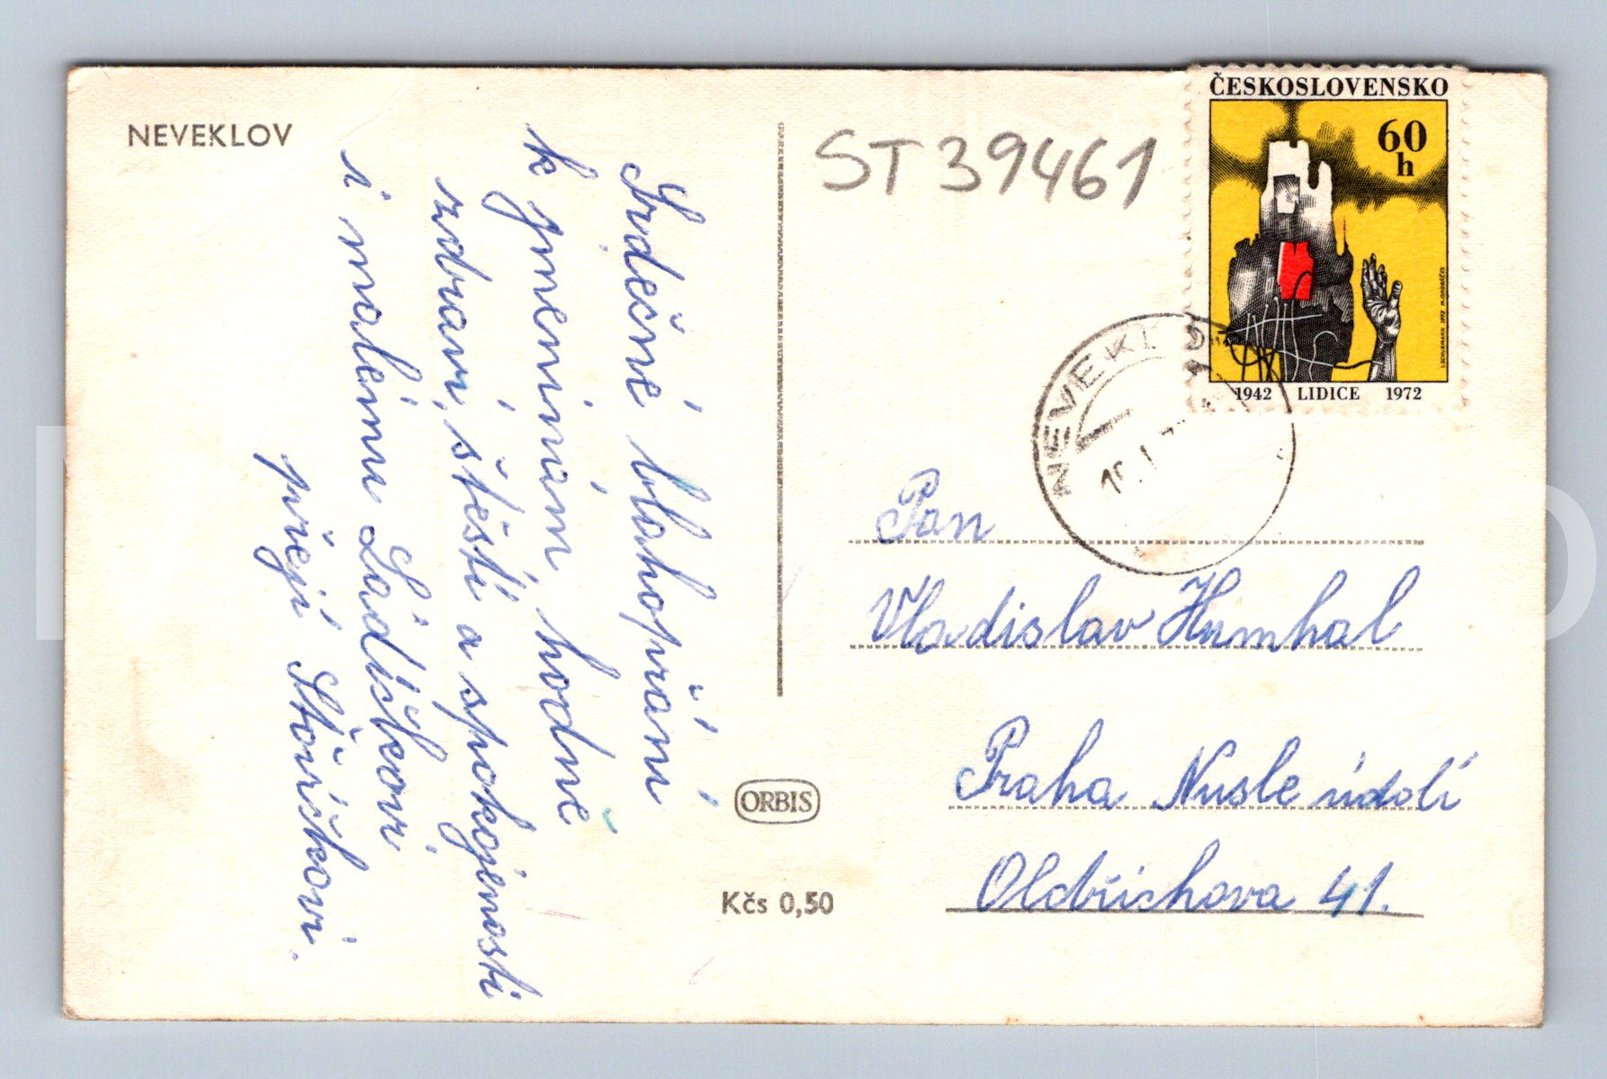 NEVEKLOV
Srdečné blahopřání
k jmeninám, hodně
zdraví, štěstí a spokojenosti
i malému Ládíčkovi
přejí Stoíčkovi.
ORBIS
Kčs 0,50
ST 39461
ČESKOSLOVENSKO
60
h
1942 LIDICE 1972
Pan
Vladislav Humhal
Praha Nusle údolí
Oldřichova 41.